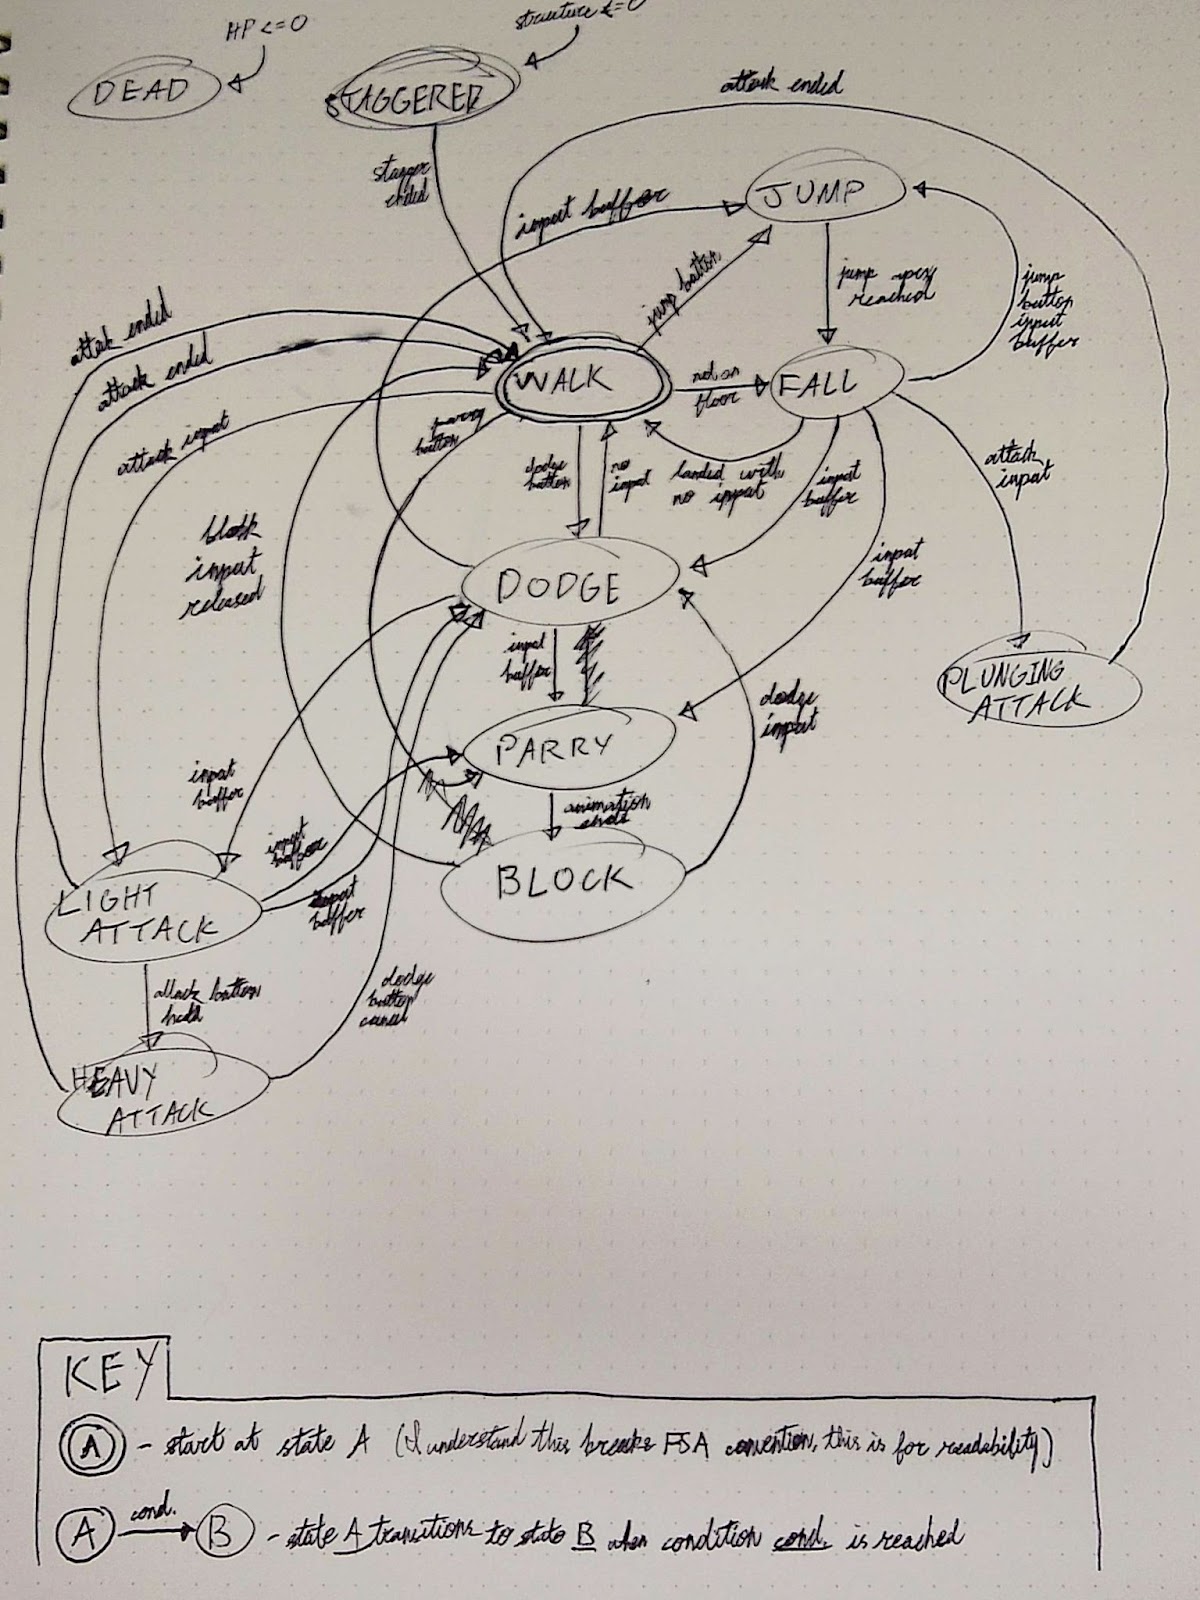 HP <= 0
structure <= 0
DEAD
STAGGERED
attack ended
stagger
ended
input buffer
JUMP
jump button
jump apex
reached
jump
button
input
buffer
attack ended
attack ended
attack input
parry
button
WALK
not on
floor
FALL
dodge
button
no
input
landed with
no input
input
buffer
attack
input
block
input
released
input
buffer
DODGE
input
buffer
PLUNGING
ATTACK
dodge
input
PARRY
input
buffer
animation
ends
input
buffer
BLOCK
input
buffer
LIGHT
ATTACK
attack button
held
dodge
button
cancel
HEAVY
ATTACK
KEY
A - start at state A (I understand this breaks FSA convention, this is for readability)
A cond. B - state A transitions to state B when condition cond. is reached